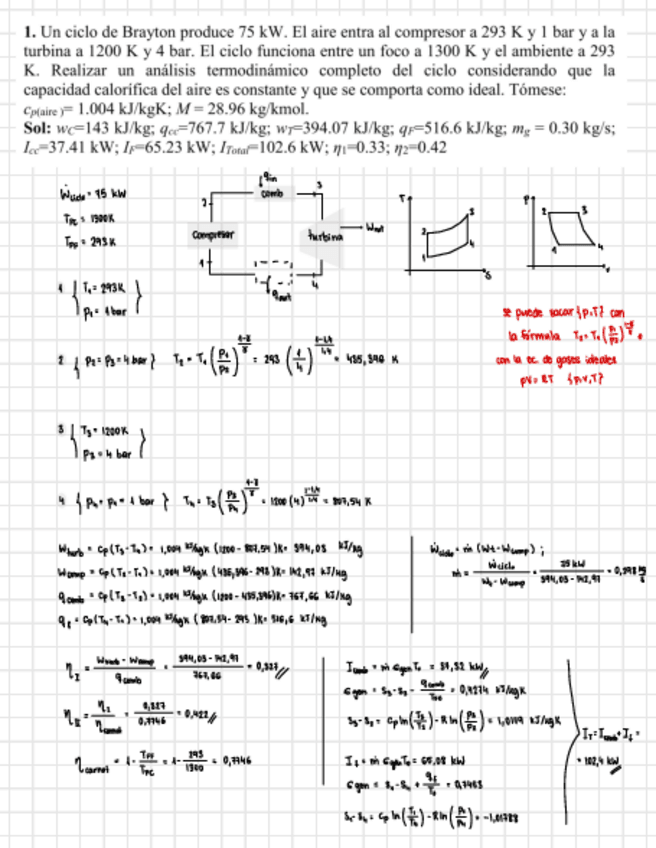 1. Un ciclo de Brayton produce 75 kW. El aire entra al compresor a 293 K y 1 bar y a la
turbina a 1200 K y 4 bar. El ciclo funciona entre un foco a 1300 K y el ambiente a 293
K. Realizar un análisis termodinámico completo del ciclo considerando que la
capacidad calorífica del aire es constante y que se comporta como ideal. Tómese:
cp(aire )= 1.004 kJ/kgK; M = 28.96 kg/kmol.
Sol: wC=143 kJ/kg; qcc=767.7 kJ/kg; wT=394.07 kJ/kg; qF=516.6 kJ/kg; mg = 0.30 kg/s;
Icc=37.41 kW; IF=65.23 kW; ITotal=102.6 kW; η1=0.33; η2=0.42
Ẇciclo = 75 kW
TFC = 1300K
TFF = 293K
qin
comb
2
3
Compresor
turbina
Wout
1
4
qout
T
2
3
1
4
S
P
2
3
1
4
1 { T1 = 293K
P1 = 1 bar }
se puede sacar {P,T} con
la fórmula
con la ec. de gases ideales
PV = RT {P,V,T}
2 { P2 = P3 = 4 bar } T2 = T1 (P1/P2)^(1-γ/γ) = 293 (1/4)^(1-1,4/1,4) = 435,396 K
3 { T3 = 1200K
P3 = 4 bar }
4 { P4 = P1 = 1 bar } T4 = T3 (P3/P4)^(1-γ/γ) = 1200 (4)^(1-1,4/1,4) = 807,54 K
Wturb = cp (T3 - T4) = 1,004 kJ/kgK (1200 - 807,54)K = 394,03 kJ/kg
Wcomp = cp (T2 - T1) = 1,004 kJ/kgK (435,396 - 293)K = 142,97 kJ/kg
qcomb = cp (T3 - T2) = 1,004 kJ/kgK (1200 - 435,396)K = 767,66 kJ/kg
qf = cp (T4 - T1) = 1,004 kJ/kgK (807,54 - 293)K = 516,6 kJ/kg
Ẇciclo = ṁ (Wt - Wcomp) ;
ṁ = Ẇciclo / (Wt - Wcomp) = 75 kW / (394,03 - 142,97) = 0,298
ηI = (Wturb - Wcomp) / qcomb = (394,03 - 142,97) / 767,66 = 0,327
ηII = ηI / ηcarnot = 0,327 / 0,7746 = 0,422
ηcarnot = 1 - TFF/TFC = 1 - 293/1300 = 0,7746
Icomb = ṁ σgen T0 = 37,32 kW
σgen = S3 - S2 - qcomb/TFC = 0,4274 kJ/kgK
S3 - S2 = cp ln (T3/T2) - R ln (P3/P2) = 1,0179 kJ/kgK
If = ṁ σgen T0 = 65,08 kW
σgen = S1 - S4 + qf/T0 = 0,7453
S1 - S4 = cp ln (T1/T4) - R ln (P1/P4) = -1,01788
IT = Icomb + If =
= 102,4 kW